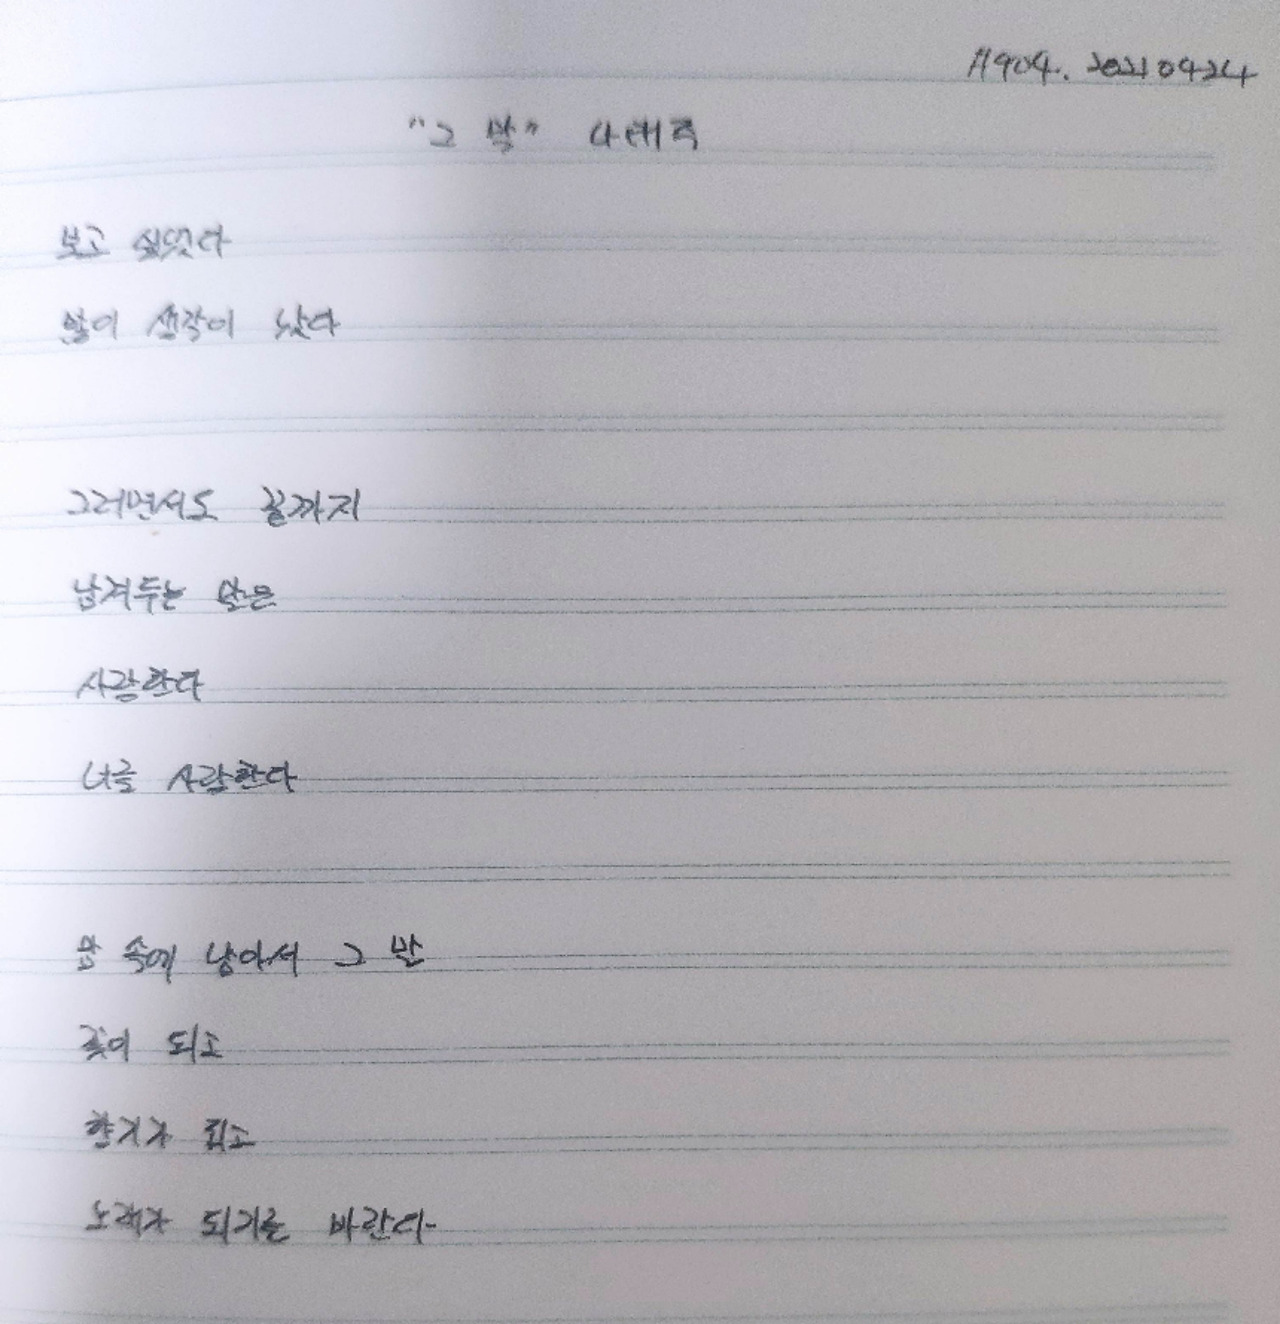 #904. 20210924
"그 말" 나태주
보고 싶었다
많이 생각이 났다
그러면서도 끝까지
남겨두는 말은
사랑한다
너를 사랑한다
맘 속에 남아서 그 말
꽃이 되고
향기가 되고
노래가 되기를 바란다-